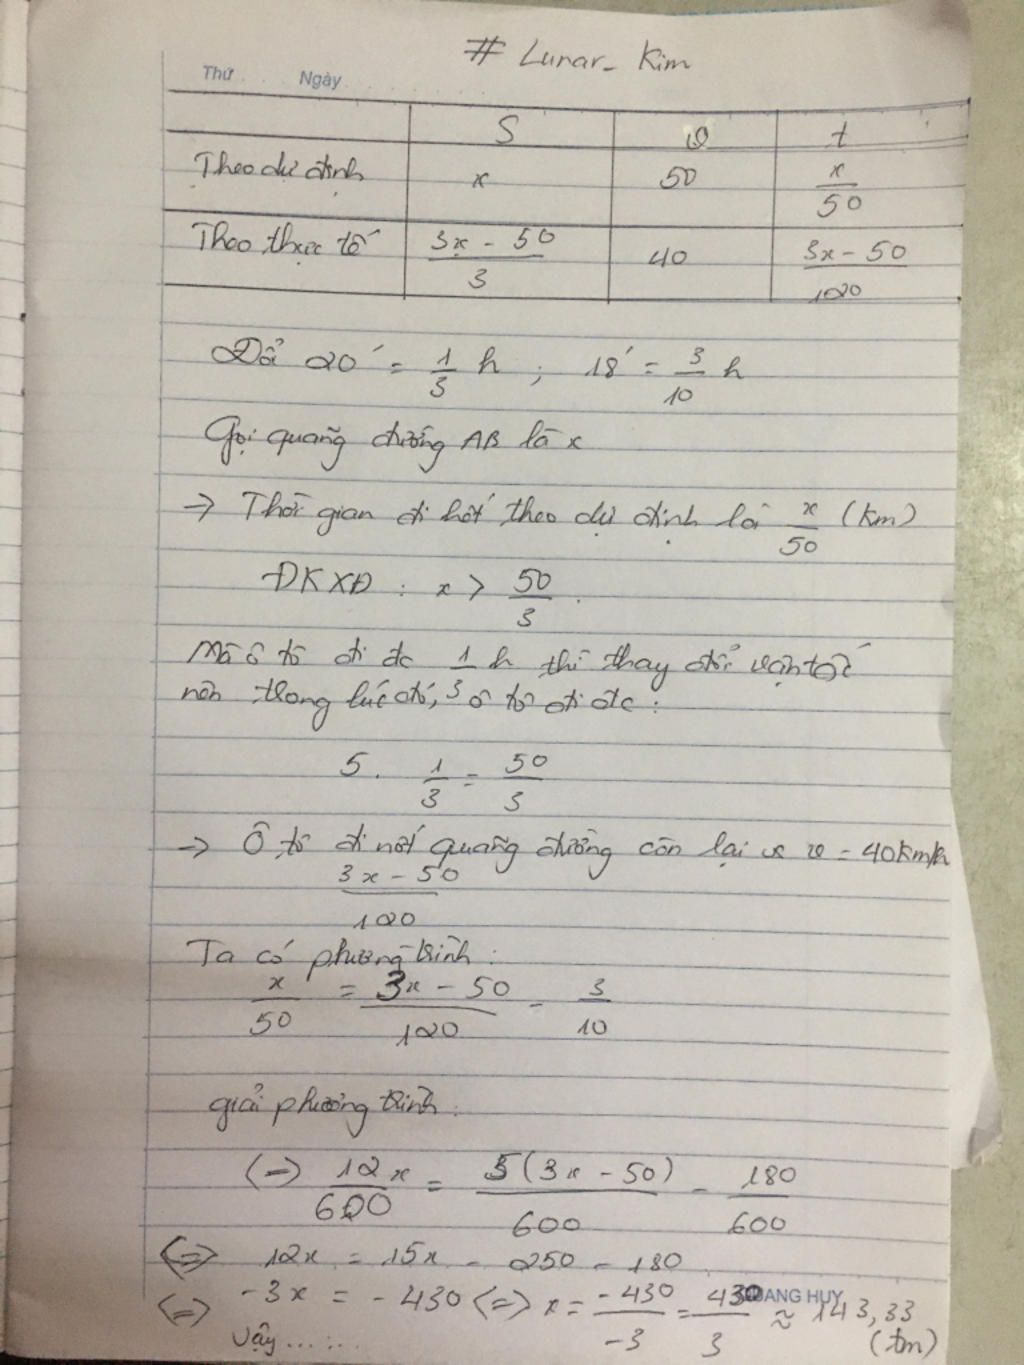 # Lunar_ Kim
Thứ Ngày
S v t
Theo dự định x 50 x/50
Theo thực tế 3x - 50/3 40 3x - 50/120
Đổi 20' = 1/3 h ; 18' = 3/10 h
Gọi quãng đường AB là x
→ Thời gian đi hết theo dự định là x/50 (km)
ĐKXĐ : x > 50/3 .
Mà ô tô đi đc 1/3 h thì thay đổi vận tốc
nên trong lúc đó, ô tô đi đc :
5. 1/3 = 50/3
→ Ô tô đi nốt quãng đường còn lại vs v = 40km/h
3x - 50/120
Ta có phương trình :
x/50 = 3x - 50/120 - 3/10
giải phương trình :
(=) 12x/600 = 5(3x - 50)/600 - 180/600
(=) 12x = 15x - 250 - 180
(=) -3x = - 430 (=) x = -430/-3 = 430/3 ≈ 143,33
HOANG HUY
Vậy ...... (tm)